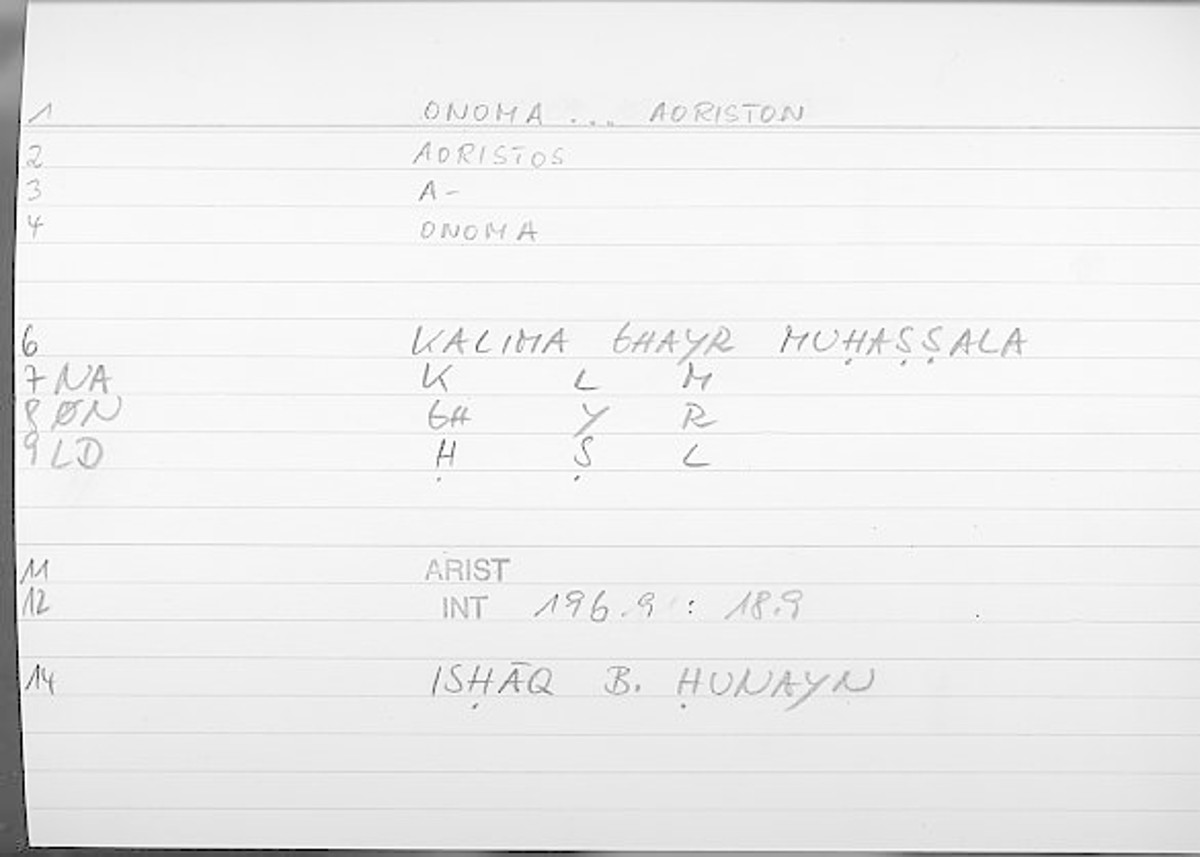 1 ONOMA ... AORISTON
2 AORISTOS
3 A-
4 ONOMA
6 KALIMA GHAYR MUḤAṢṢALA
7 NA K L M
8 ØN GH Y R
9 LD Ḥ Ṣ L
11 ARIST
12 INT 196.9 : 18.9
14 ISḤĀQ B. ḤUNAYN